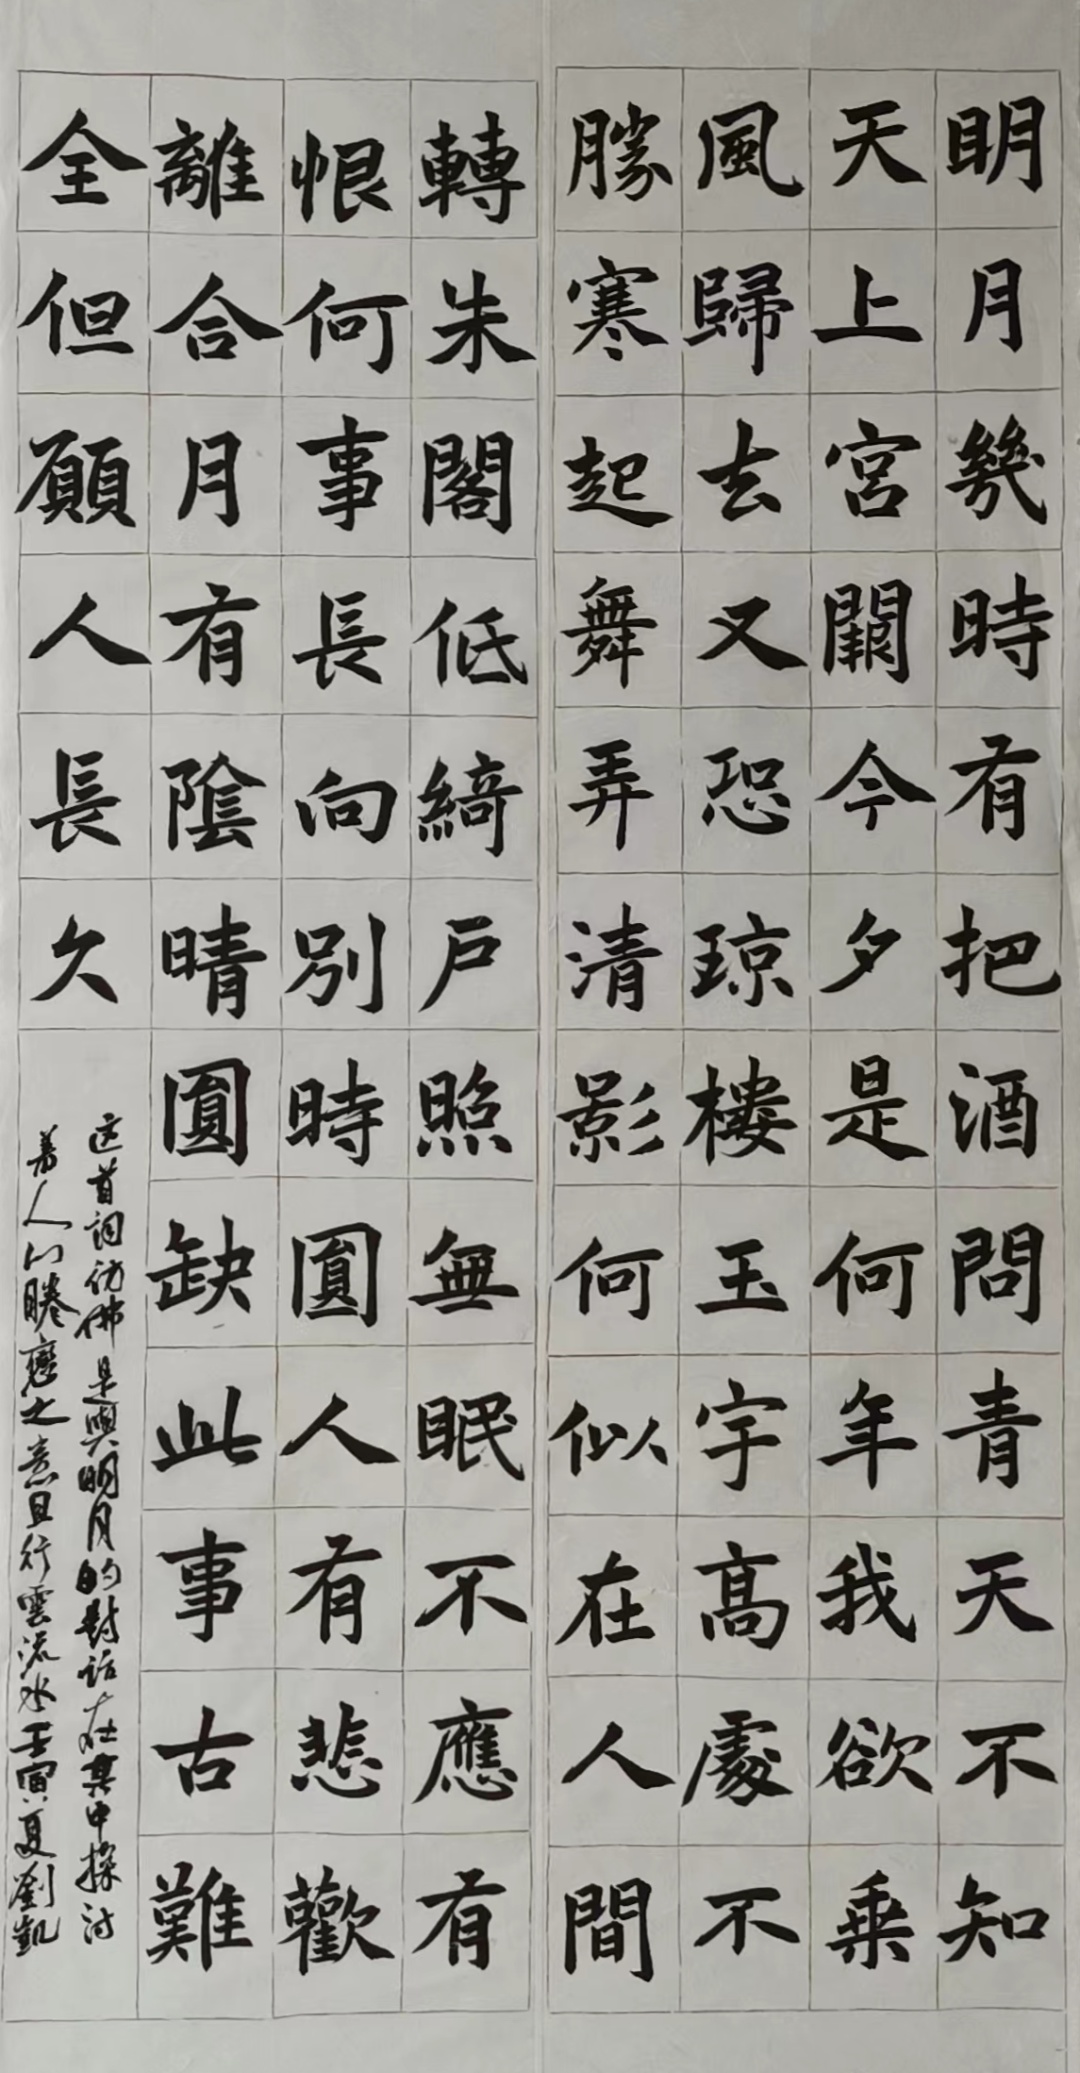 明月幾時有把酒問青天不知
天上宮闕今夕是何年我欲乘
風歸去又恐琼樓玉宇高處不
勝寒起舞弄清影何似在人間
轉朱閣低綺戶照無眠不應有
恨何事長向別時圓人有悲歡
離合月有陰晴圓缺此事古難
全但願人長久
这首词彷佛是與明月的對话在其中探讨
着人们睠戀之意且行雲流水壬寅夏劉凱